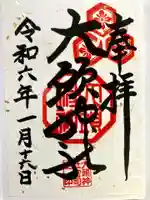 奉拝
大頭神社
令和六年一月十六日